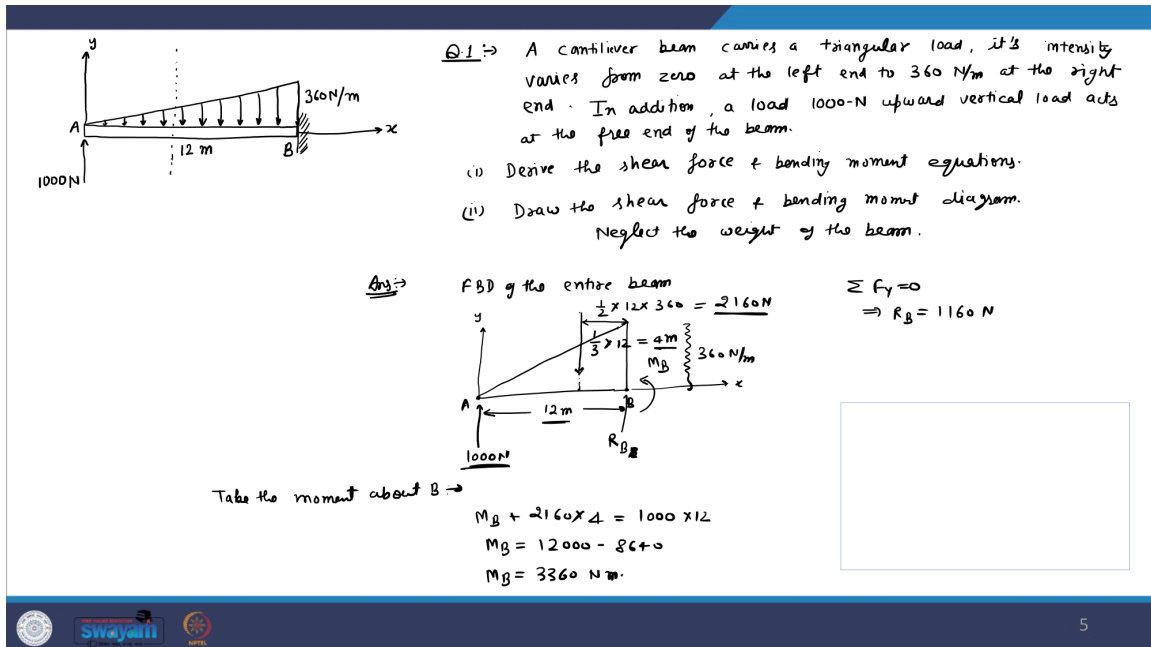 y
360 N/m
A
x
12 m
B
1000N
Q.1:→ A cantiliever beam carries a triangular load, it's intensity
varies from zero at the left end to 360 N/m at the right
end. In addition, a load 1000-N upward vertical load acts
at the free end of the beam.
(i) Derive the shear force & bending moment equations.
(ii) Draw the shear force & bending momnt diagram.
Neglect the weight of the beam.
Ans:→ FBD of the entire beam
1/2 × 12 × 360 = 2160N
y
1/3 × 12 = 4m
MB
360 N/m
x
A
B
12m
RB
1000N
Σ Fy = 0
⇒ RB = 1160 N
Take the moment about B:→
MB + 2160×4 = 1000 ×12
MB = 12000 - 8640
MB = 3360 Nm.
swayam
NPTEL
5